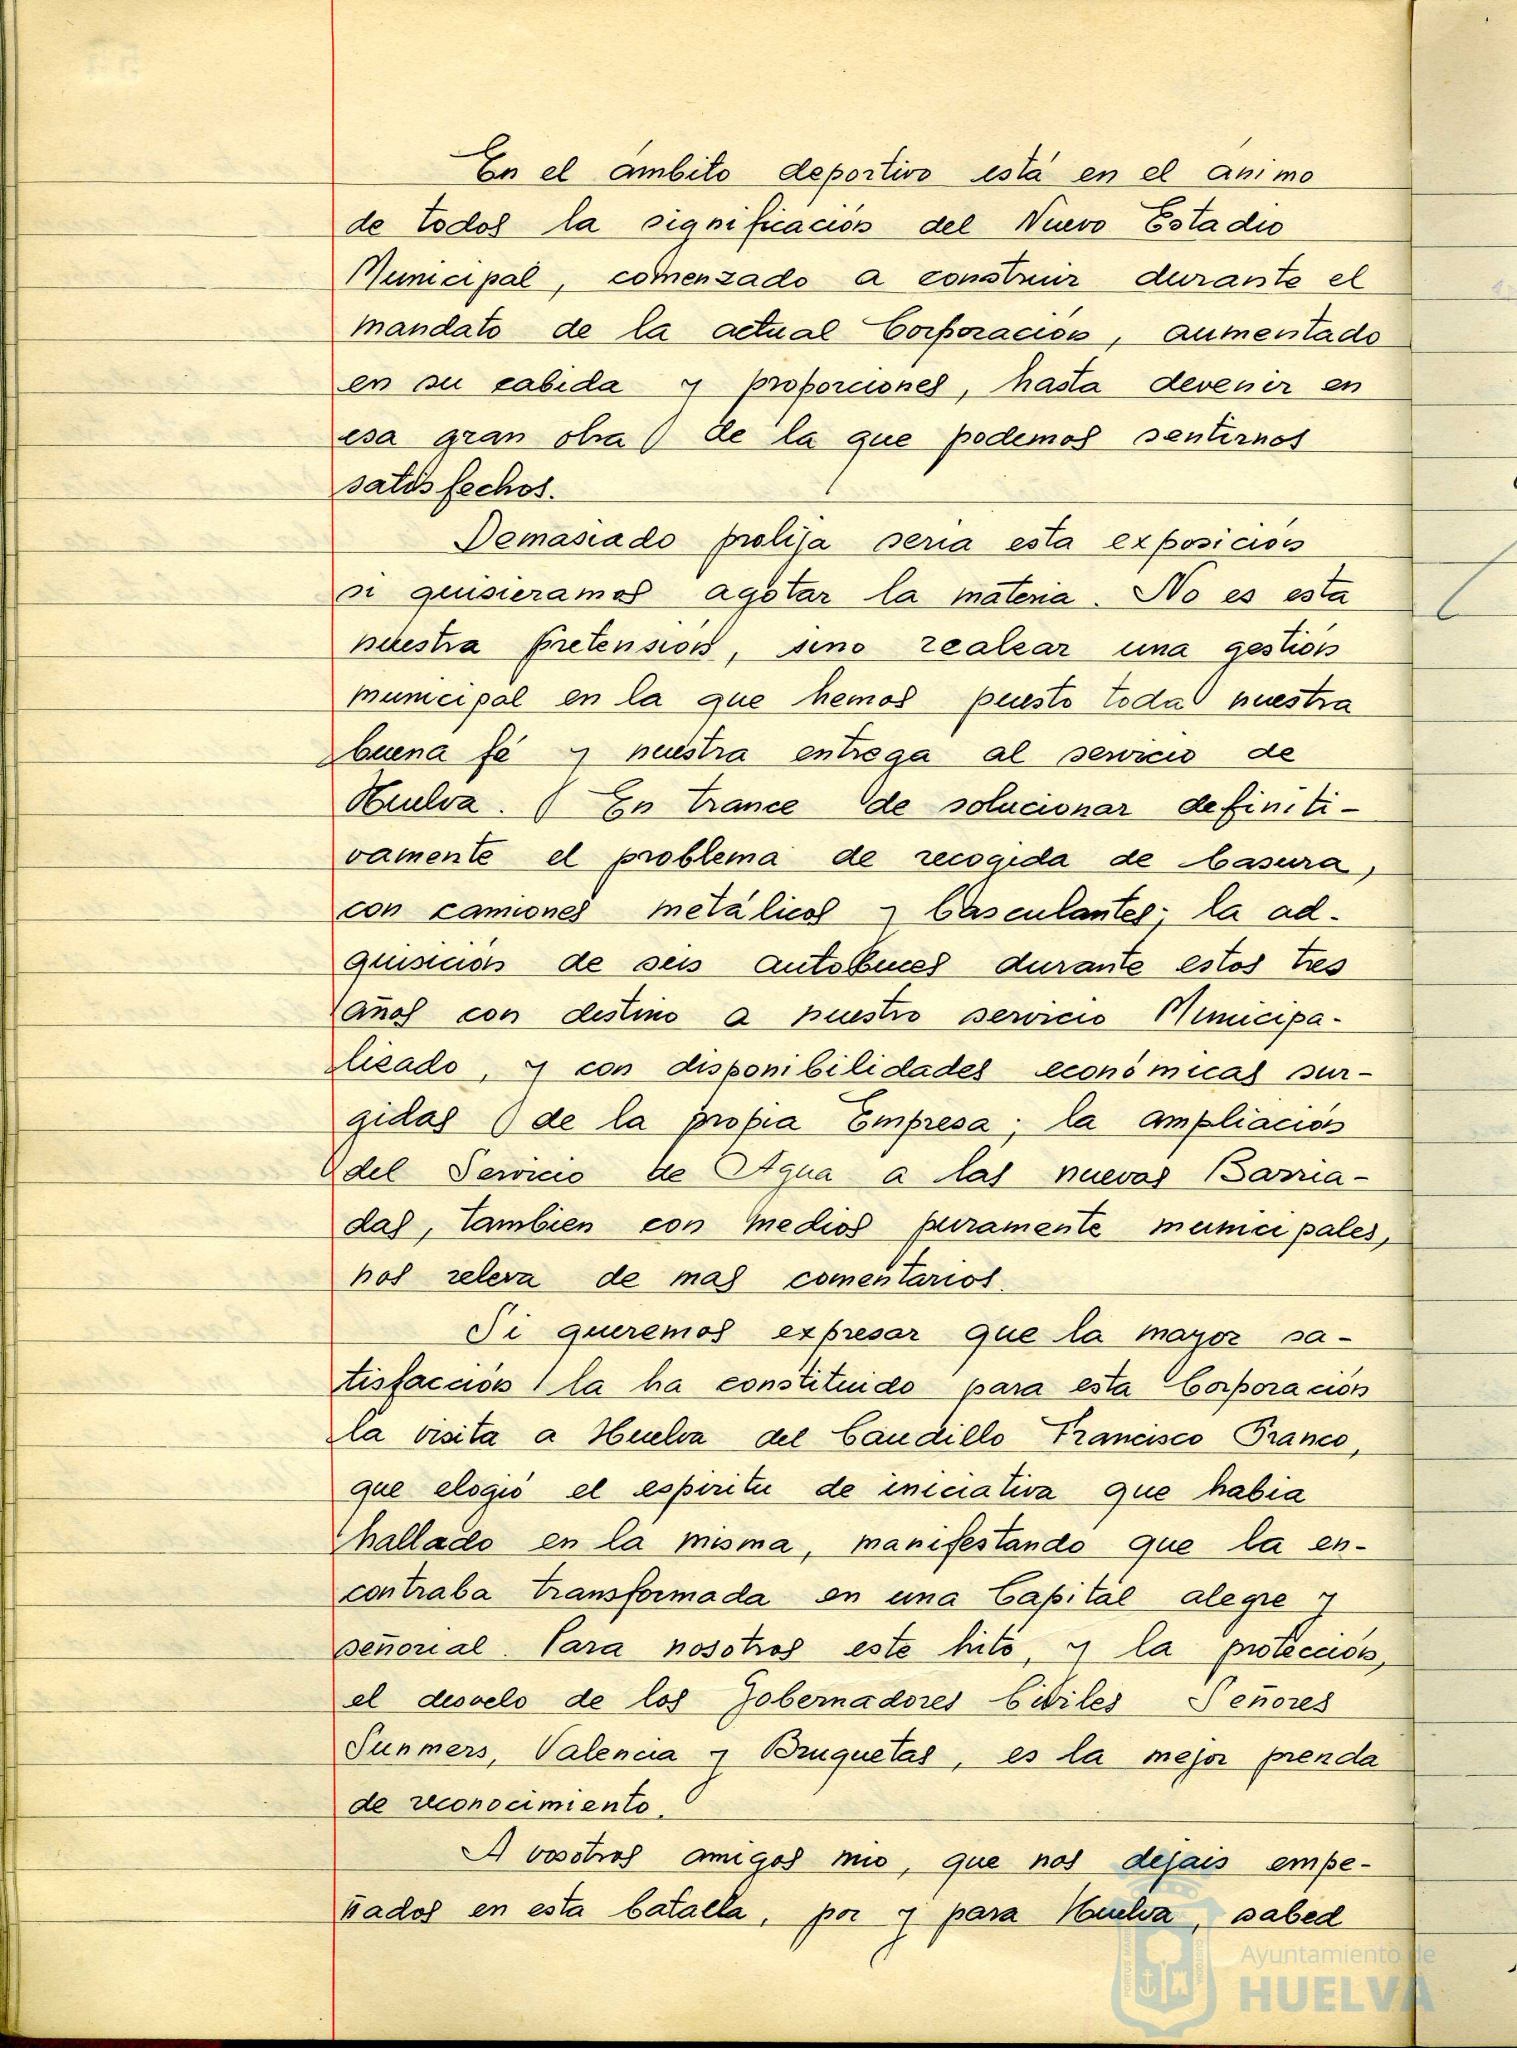 En el ámbito deportivo está en el ánimo
de todos la significación del Nuevo Estadio
Municipal, comenzado a construir durante el
mandato de la actual Corporación, aumentado
en su cabida y proporciones, hasta devenir en
esa gran obra de la que podemos sentirnos
satisfechos.
Demasiado prolija seria esta exposición
si quisieramos agotar la materia. No es esta
nuestra pretensión, sino realzar una gestión
municipal en la que hemos puesto toda nuestra
buena fé y nuestra entrega al servicio de
Huelva. En trance de solucionar definiti-
vamente el problema de recogida de basura,
con camiones metálicos y basculantes; la ad-
quisición de seis autobuses durante estos tres
años con destino a nuestro servicio Municipa-
lizado, y con disponibilidades económicas sur-
gidas de la propia Empresa; la ampliación
del Servicio de Agua a las nuevas Barria-
das, tambien con medios puramente municipales,
nos releva de mas comentarios.
Si queremos expresar que la mayor sa-
tisfacción la ha constituido para esta Corporación
la visita a Huelva del Caudillo Francisco Franco,
que elogió el espiritu de iniciativa que habia
hallado en la misma, manifestando que la en-
contraba transformada en una Capital alegre y
señorial. Para nosotros este hito, y la protección,
el desvelo de los Gobernadores Civiles Señores
Sunmers, Valencia y Bruquetas, es la mejor prenda
de reconocimiento.
A vosotros amigos mio, que nos dejais empe-
ñados en esta batalla, por y para Huelva, sabed
Ayuntamiento de
HUELVA